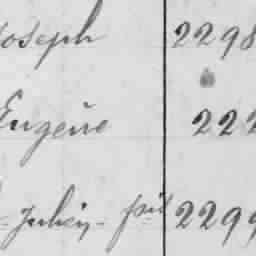 Joseph 2298
Eugène 222
Julien - fils 2299